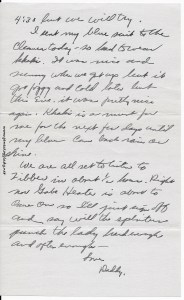 4:30 but we will try.
I sent my blue suit to the
Cleaners today - so had to wear
khakis. It was nice and
sunny when we got up but it
got foggy and cold later but
this eve. it was pretty nice
again. Khakis is a must for
me for the next few days until
my blue Come back rain or
shine.
We are all set to listen to
Fibber in about ½ hour. Right
now Gabe Heater is about to
Come On so I'll just sign off
and say will the
punch the lady hard enough
and often enough -
Love